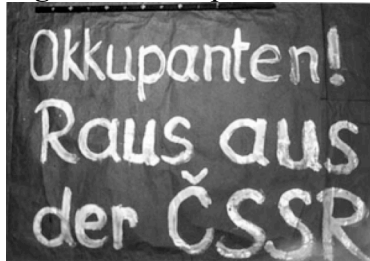 Okkupanten!
Raus aus
der ČSSR